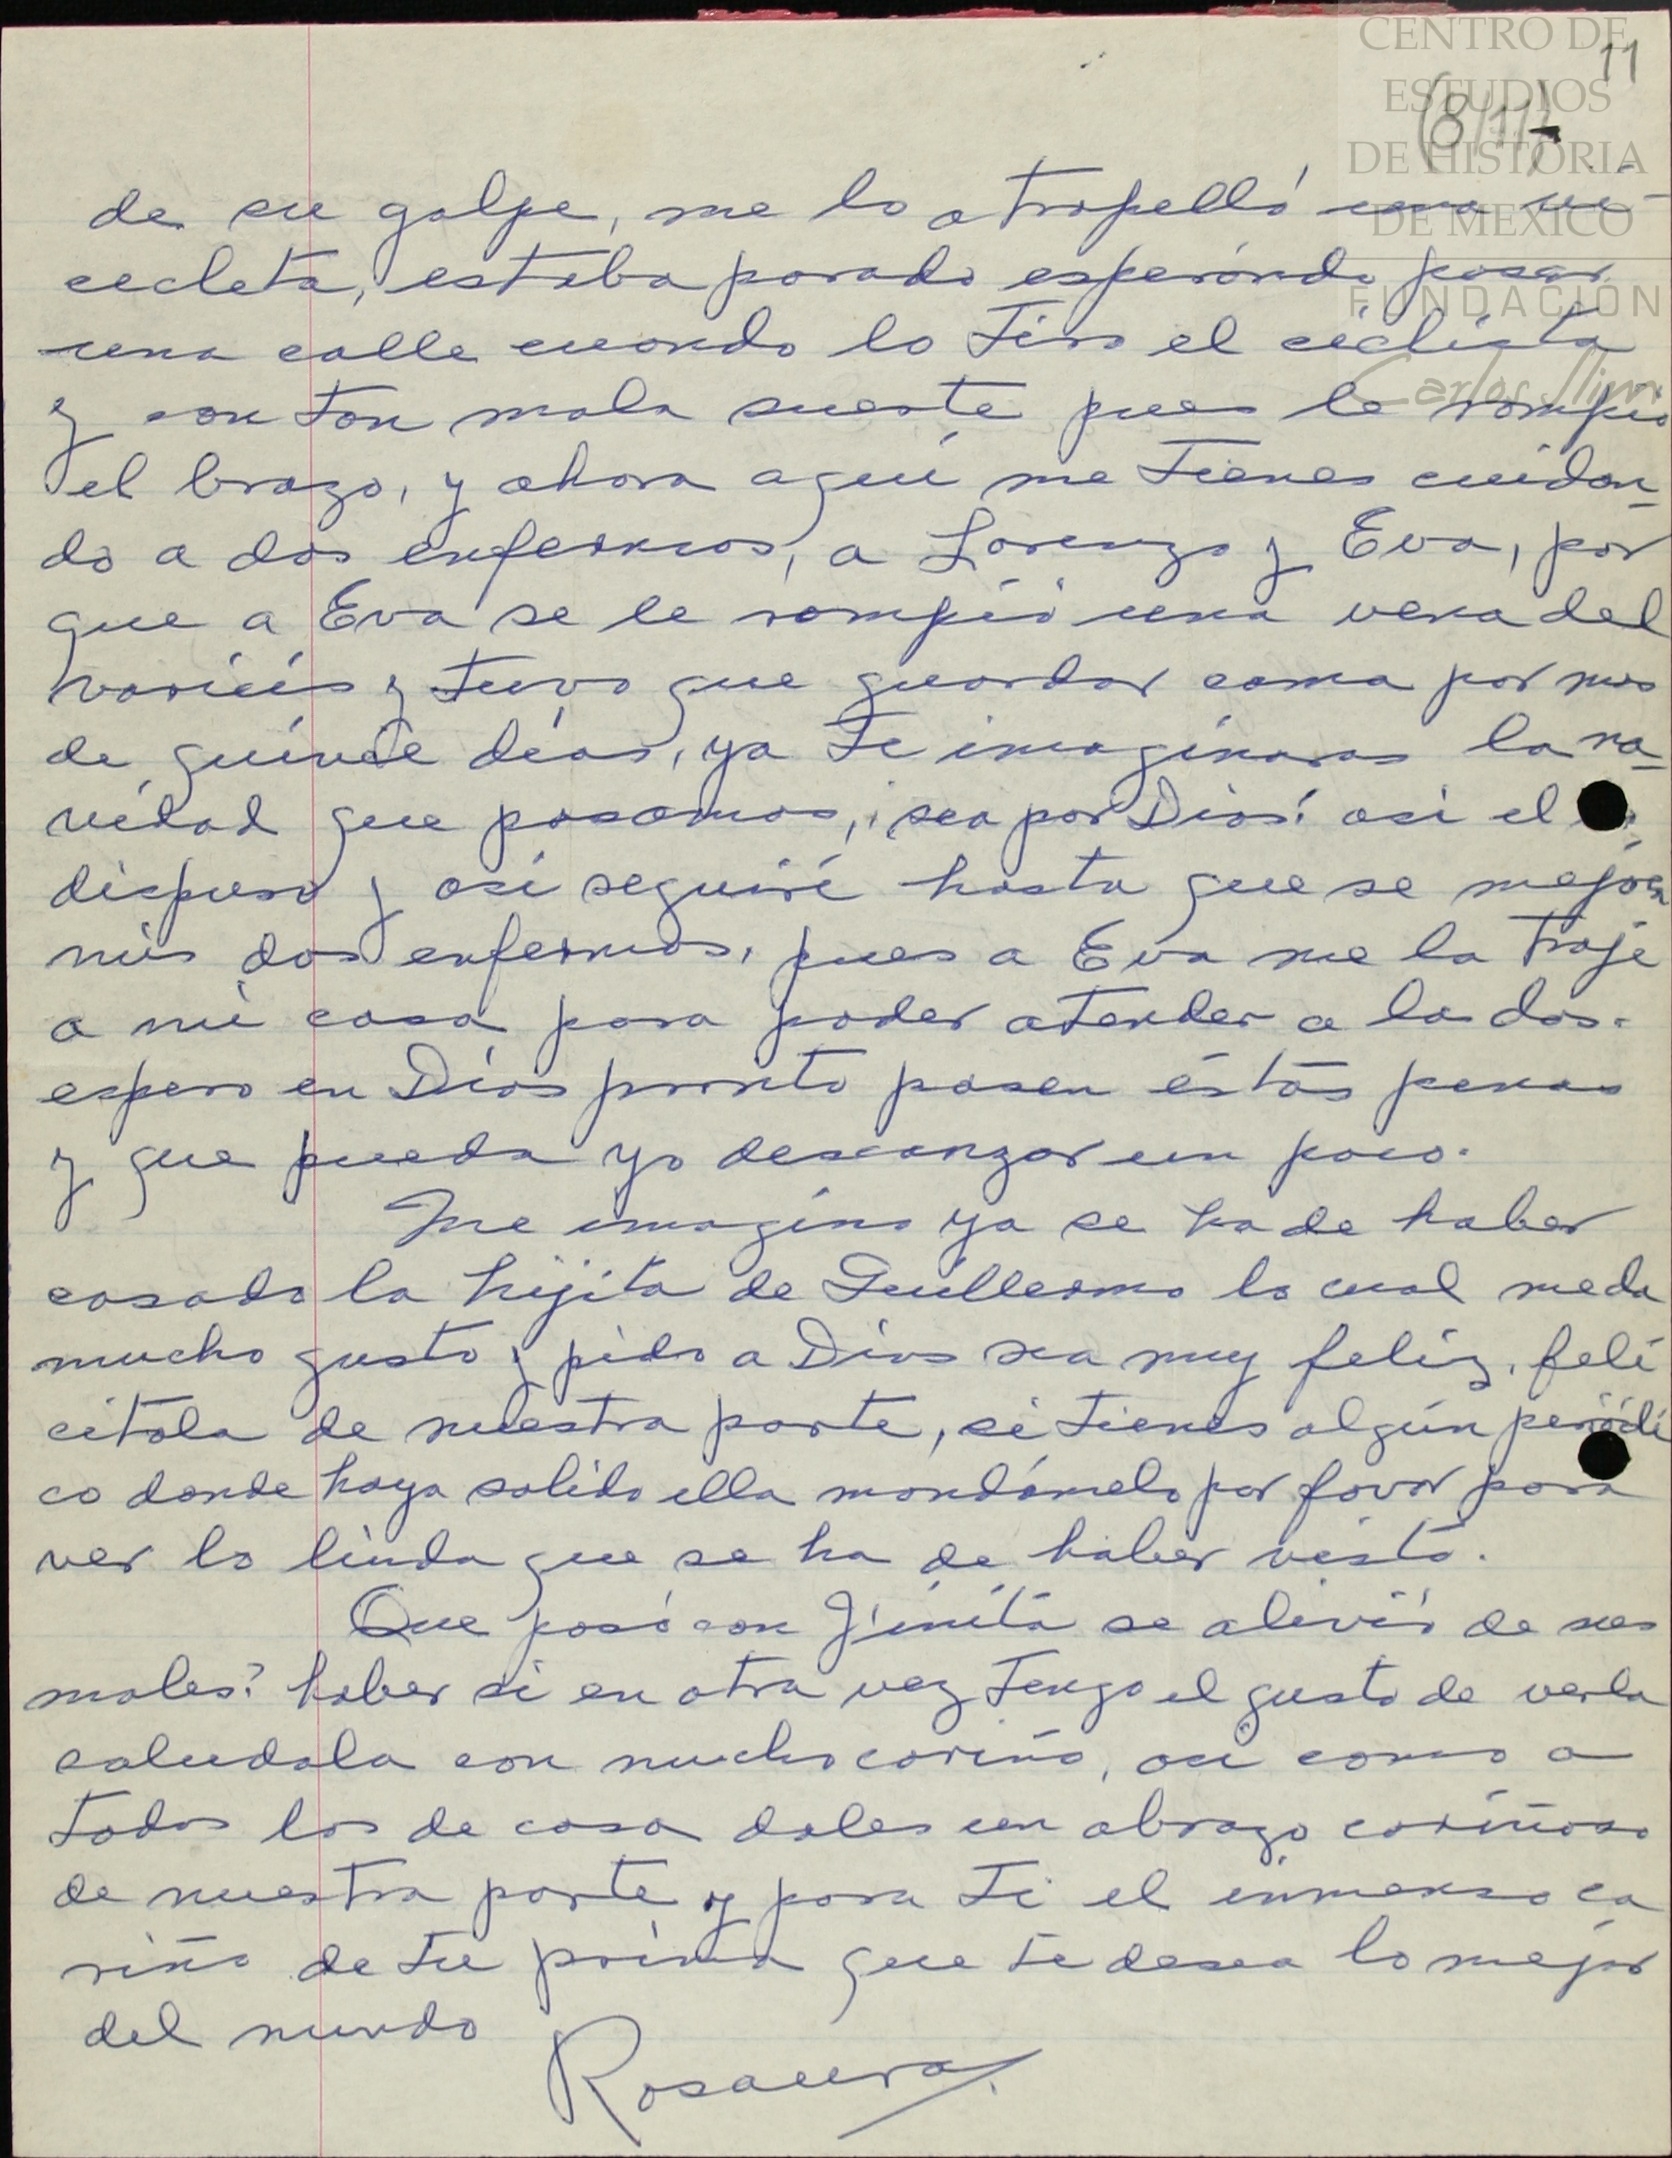 CENTRO DE
ESTUDIOS
DE HISTORIA
DE MEXICO
FUNDACIÓN
Carlos Slim
11
de su golpe, me lo atropelló una vi-
cicleta, estaba parado esperando pasar
una calle cuando lo tiro el ciclista
y con tan mala suerte pues le rompio
el brazo, y ahora aquí me tienes cuidan-
do a dos enfermos, a Lorenzo y Eva, por
que a Eva se le rompió una vena del
varicis y tuvo que guardar cama por mas
de quince días, ya te imaginaras la na-
vidad que pasamos, ¡sea por Dios! asi el
dispuso y así seguiré hasta que se mejoren
mis dos enfermos, pues a Eva me la traje
a mi casa para poder atender a los dos.
espero en Dios pronto pasen éstas penas
y que pueda yo descanzar un poco.
Me imagino ya se ha de haber
casado la hijita de Guillermo lo cual me da
mucho gusto y pido a Dios sea muy feliz, feli
citala de nuestra parte, si tienes algún periódi
co donde haya salido ella mandámelo por favor para
ver lo linda que se ha de haber visto.
Que pasó con Jinita se alivió de sus
males? haber si en otra vez tengo el gusto de verla
saludala con mucho cariño, asi como a
todos los de casa dales un abrazo cariñoso
de nuestra parte y para ti el inmenso ca
riño de tu prima que te desea lo mejor
del mundo
Rosaura